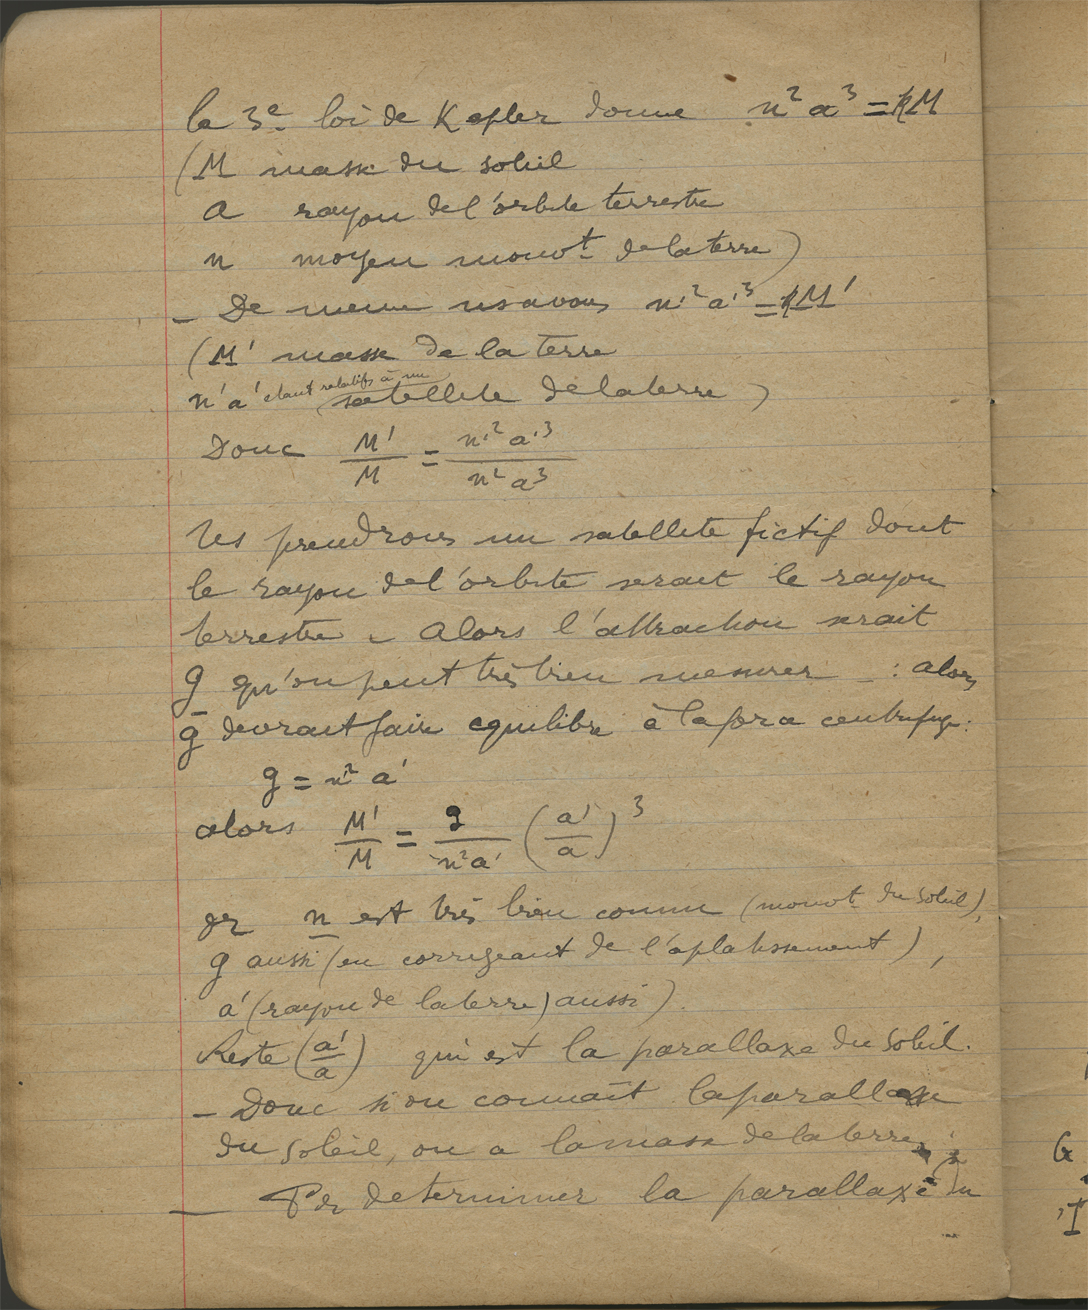 la 3e loi de Kepler donne n²a³ = kM
(M masse du soleil
a rayon de l'orbite terrestre
n moyen mouvt de la terre)
– De meme ns avons n'²a'³ = kM'
(M' masse de la terre
n'a' étant relatifs à un satellite de la terre)
Donc M'/M = n'²a'³/n²a³
Ns prendrons un satellite fictif dont
le rayon de l'orbite serait le rayon
terrestre – Alors l'attraction serait
g qu'on peut très bien mesurer – : alors
g devrait faire equilibre à la force centrifuge :
g = n'² a'
alors M'/M = g/n²a' (a'/a)³
or n est très bien connu (mouvt du soleil),
g aussi (en corrigeant de l'aplatissement),
a' (rayon de la terre) aussi).
Reste (a'/a) qui est la parallaxe du soleil.
– Donc si on connaît la parallaxe
du soleil, on a la masse de la terre
— Pr determiner la parallaxe du
G
I